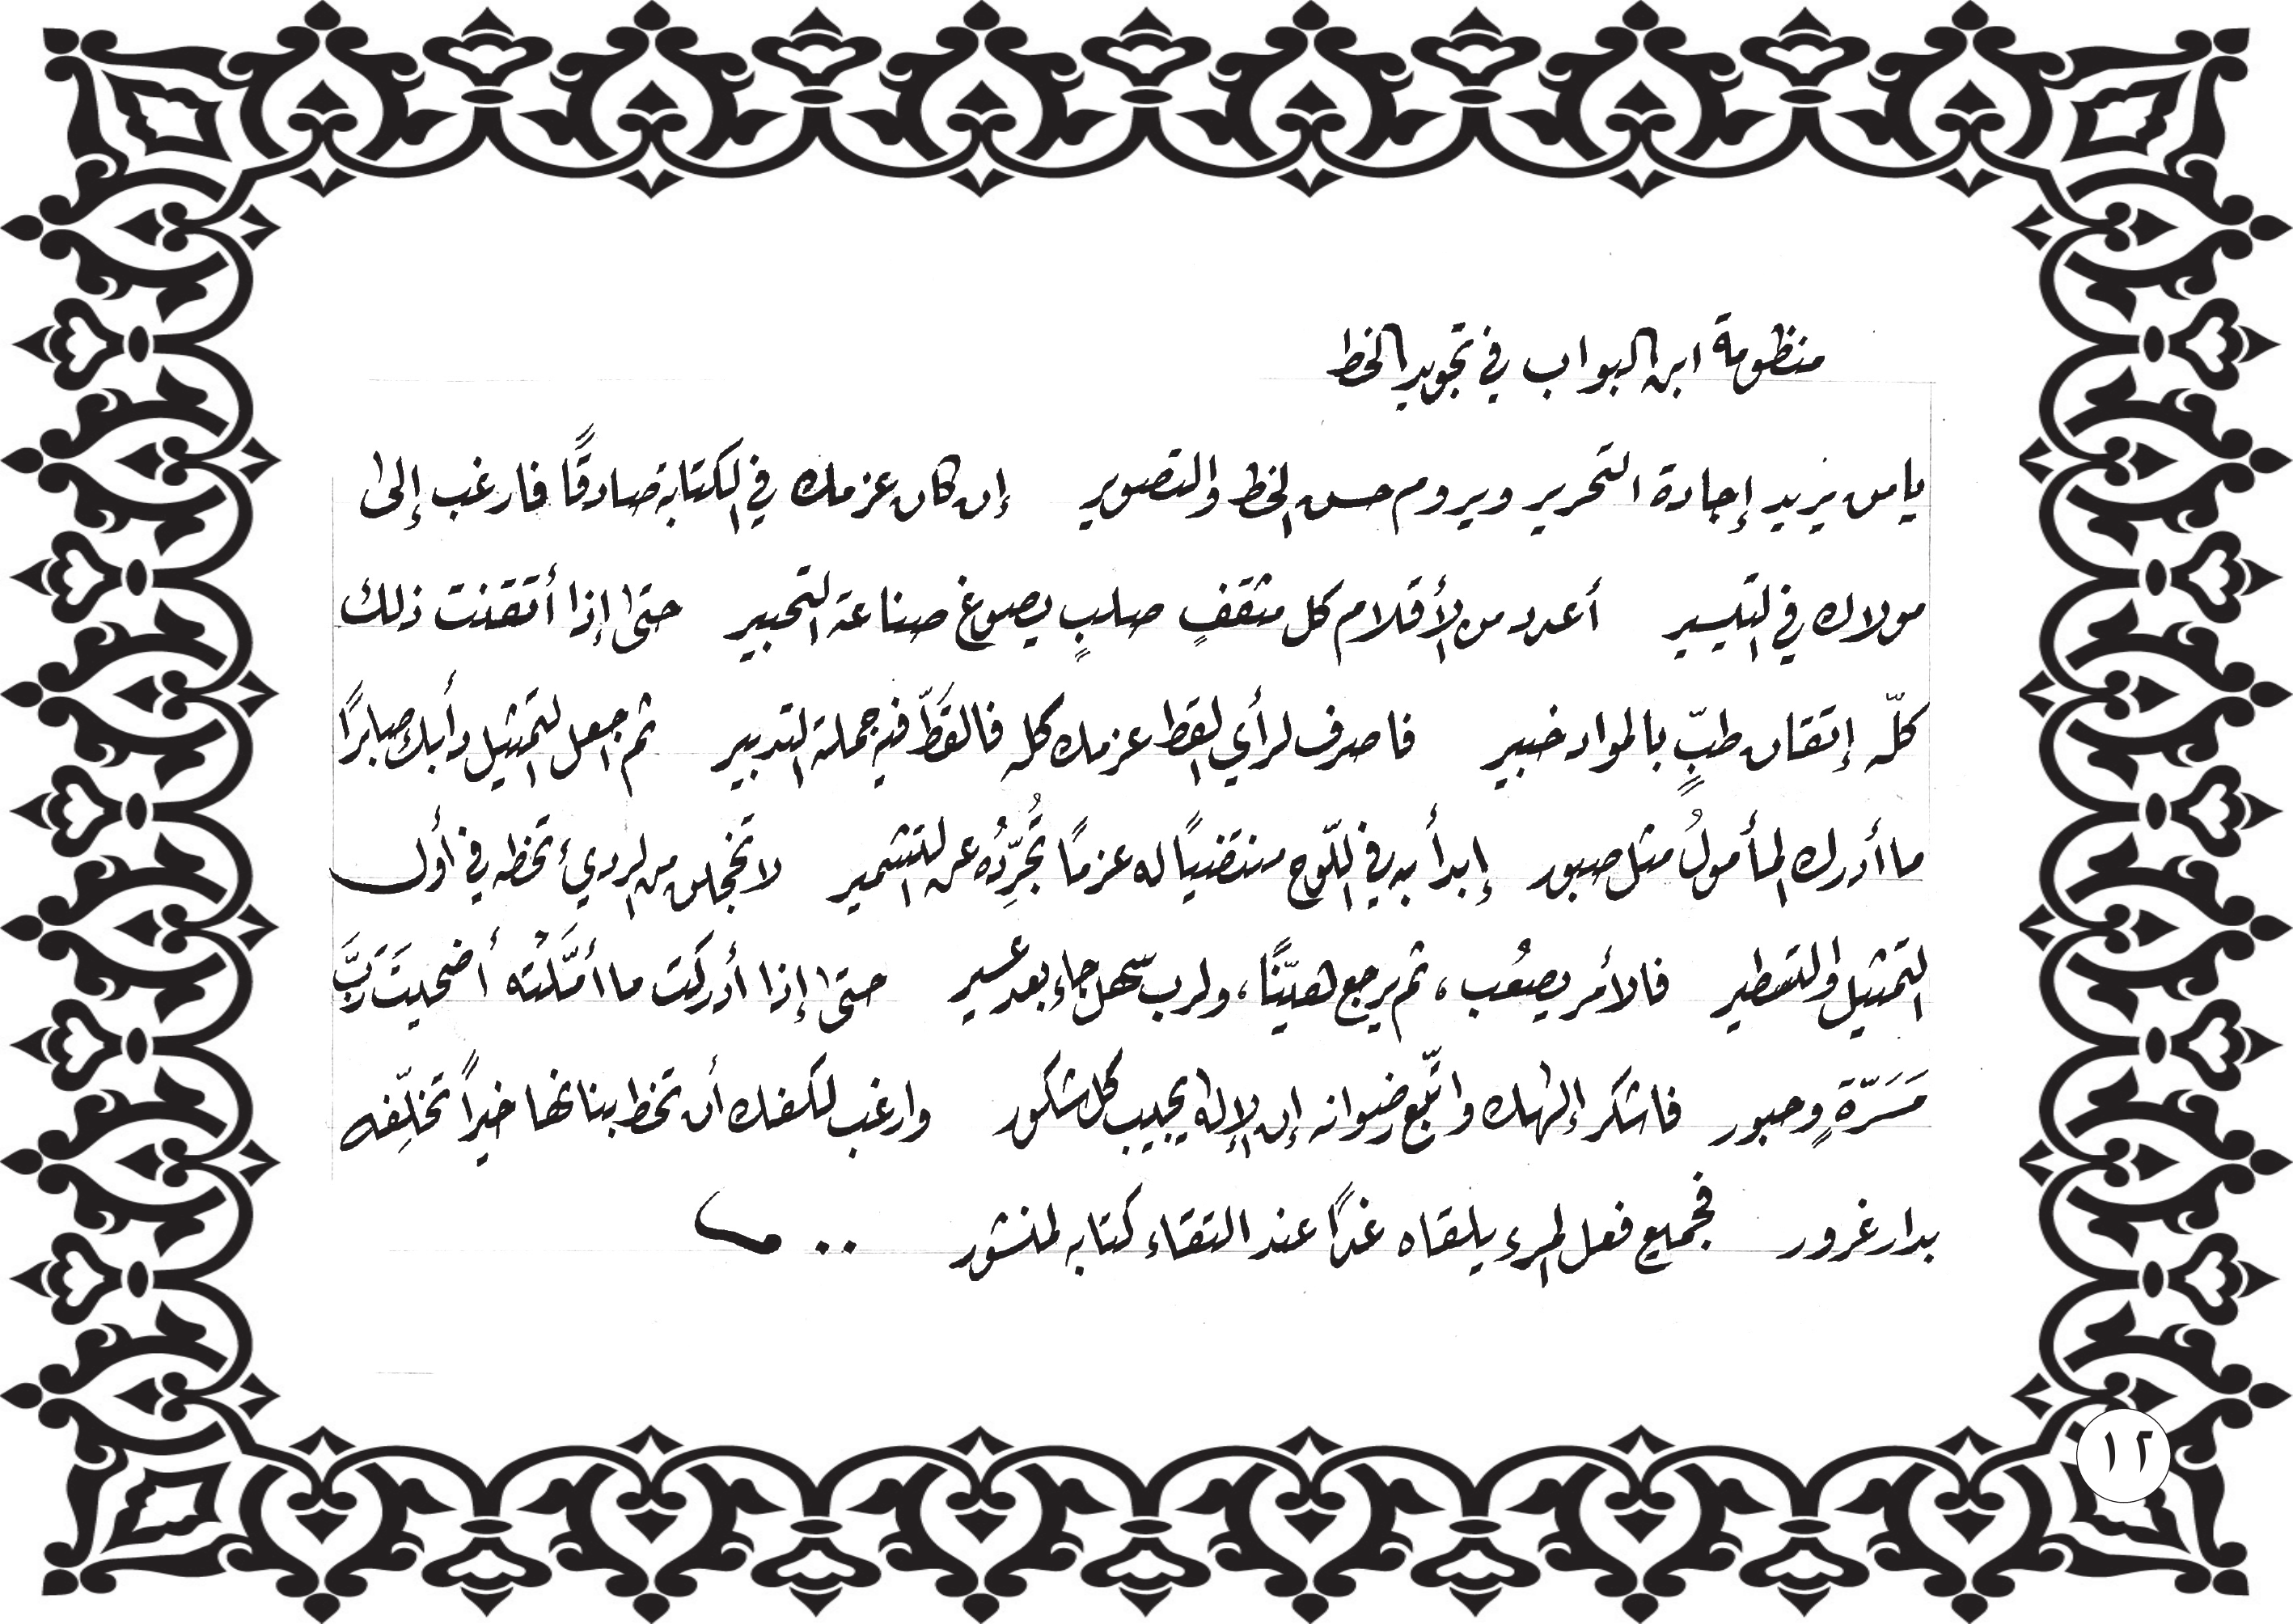 منظومة ابن البواب في تجويد الخط
يا من يريد إجادة التحرير ويروم حسن الخط والتصوير إن كان عزمك في الكتابة صادقًا فارغب إلى
مولاك في التيسير أعدد من الأقلام كل مثقفٍ صلبٍ يصوغ صناعة التحبير حتى إذا أتقنت ذلك
كلّه إتقان طبٍّ بالمواد خبير فاصرف لرأي القط عزمك كله فالقَطّ فيه جملة التدبير ثم اجعل التمثيل دأبك صابرًا
ما أدرك المأمولُ مثل صبور إبدأ به في اللّوح منتضيًا له عزمًا تُجَرِّدُه عن التشمير لا تخجلن من الردئ تخطه في أول
التمثيل والتسطير فالأمر يصعُب، ثم يرجع هيّنًا، ولرب سهل جاء بعد عسير حتى إذا أدركت ما أمّلْتَه أضحيتَ رَبَّ
مَسَرّةٍ وحبور فاشكر إلهك واتّبع رضوانه إن الإله يجيب كل شكور وارغب لكفك أن تخط بنانها خيرًا تخلِّفه
بدار غرور فجميع فعل المرء يلقاه غدًا عند التقاء كتابه المنشور ..
١٢